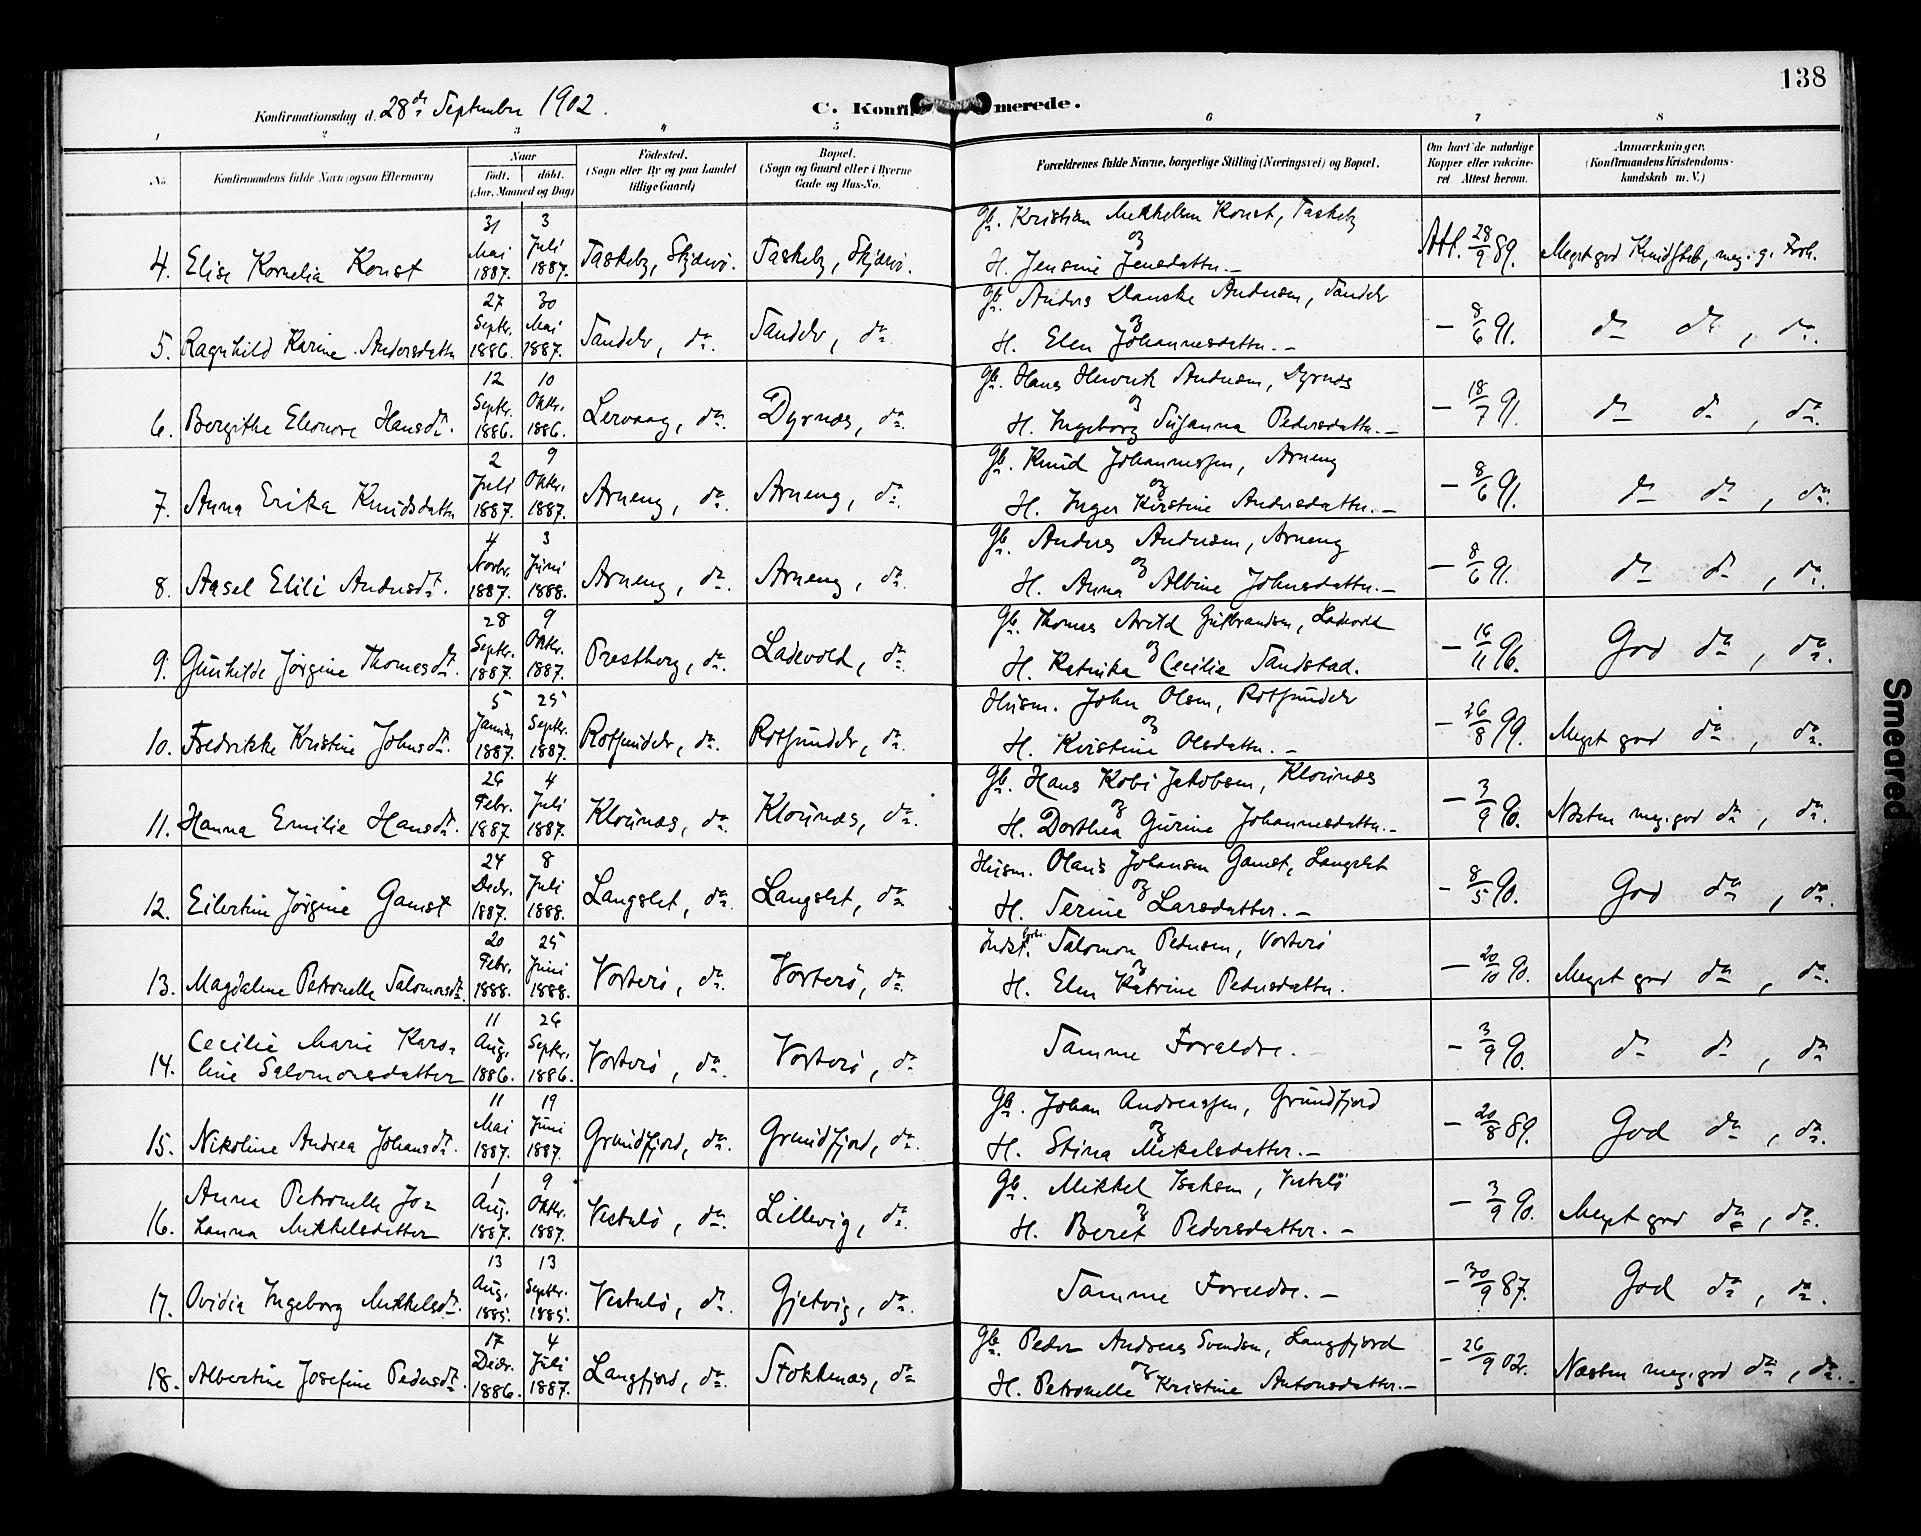 138
Konfirmationsdag d. 28de September 1902.
C. Konfirmerede.
1 2 3 4 5 6 7 8
No. Konfirmandens fulde Navn (ogsaa Efternavn)
Naar
födt. döbt.
(Aar, Maaned og Dag)
Födested.
(Sogn eller By og paa Landet
tillige Gaard)
Bopæl.
(Sogn og Gaard eller i Byerne
Gade og Hus-No.
Forældrenes fulde Navne, borgerlige Stilling (Næringsvei) og Bopæl.
Om havt de naturlige
Kopper eller vakcine-
ret Attest herom.
Anmærkninger.
(Konfirmandens Kristendoms-
kundskab m. V.)
4. Elise Kornelia Konst 31 Mai 1887. 3 Juli 1887. Taskeby, Skjærvö. Taskeby, Skjærvö. Gb. Kristian Mikkelsen Konst, Taskeby
og
H. Jensine Jensdatter. – Att. 28/9 89. Meget god Kundskab, meg. g. Forh.
5. Ragnhild Karine Andersdatter 27 Septr. 1886. 30 Mai 1887. Sandör, do. Sandör, do. Gb. Anders Danske Andersen, Sandör
og
H. Elen Johannesdatter. – – 8/6 91. do do, do.
6. Bergithe Eleonore Hansdr. 12 Septr. 1886. 10 Oktr. 1886. Lervaag, do. Dyrnæs, do. Gb. Hans Henrik Andersen, Dyrnæs
og
H. Ingeborg Susanna Pedersdatter. – – 18/7 91. do do, do.
7. Anna Erika Knudsdatter 2 Juli 1887. 9 Oktr. 1887. Arneng, do. Arneng, do. Gb. Knud Johannessen, Arneng
og
H. Inger Kirstine Andersdatter. – – 8/6 91. do do, do.
8. Aasel Elili Andersdr. 4 Novbr. 1887. 3 Juni 1888. Arneng, do. Arneng, do. Gb. Anders Andersen, Arneng
og
H. Anna Albine Johnsdatter. – – 8/6 91. do do, do.
9. Gunhilde Jörgine Thomasdr. 28 Septr. 1887. 9 Oktr. 1887. Prestberg, do. Ladevold, do. Gb. Thomas Arild Gulbrandsen, Ladevold
og
H. Katinka Cecilia Sandstad. – 16/11 96. God do, do.
10. Fredrikke Kristine Johnsdr. 5 Januar 1887. 25 Septr. 1887. Rotsundelv, do. Rotsundelv, do. Husm. John Olsen, Rotsundelv
og
H. Kristine Olsdatter. – – 26/8 99. Meget god do, do.
11. Hanna Emilie Hansdr. 26 Febr. 1887. 4 Juli 1887. Klounæs, do. Klounæs, do. Gb. Hans Kobi Jakobsen, Klounæs
og
H. Dorthea Gurine Johannesdatter. – – 3/9 90. Næsten meg. god do, do.
12. Eilertine Jörgine Gamst 24 Decbr. 1887. 8 Juli 1888. Langslet, do. Langslet, do. Husm. Olaus Johansen Gamst, Langslet
og
H. Serine Larsdatter. – – 8/5 90. God do, do.
13. Magdalene Petronelle Salomonsdr. 20 Febr. 1888. 25 Juni 1888. Vorterö, do. Vorterö, do. Indst. Salomon Pedersen, Vorterö
og
H. Elen Katrine Pedersdatter. – 20/10 90. Meget god do, do.
14. Cecilie Marie Karo-
line Salomonsdatter 11 Aug. 1886. 26 Septr. 1886. Vorterö, do. Vorterö, do Samme Forældre. – – 3/9 90. do do, do
15. Nikoline Andrea Johansdr. 11 Mai 1887. 19 Juni 1887. Grundfjord, do. Grundfjord, do. Gb. Johan Andreassen, Grundfjord
og
H. Stina Mikelsdatter. – – 20/8 89. God do, do.
16. Anna Petronelle Jo-
hanna Mikkelsdatter 1 Aug. 1887. 9 Oktr. 1887. Vestelö, do. Lillevig, do. Gb. Mikkel Isaksen, Vestelö
og
H. Beret Pedersdatter. – – 3/9 90. Meget god do, do.
17. Ovidia Ingeborg Mikkelsdr. 13 Aug. 1885. 13 Septbr. 1885. Vestelö, do. Gjetvig, do. Samme Forældre. – – 30/9 87. God do, do.
18. Albertine Josefine Pedersdr. 17 Decbr. 1886. 4 Juli 1887. Langfjord, do. Stokkenæs, do Gb. Peder Andreas Svendsen, Langfjord
og
H. Petronelle Kristine Antonsdatter. – – 26/9 02. Næsten meg. god do, do.
Smeared